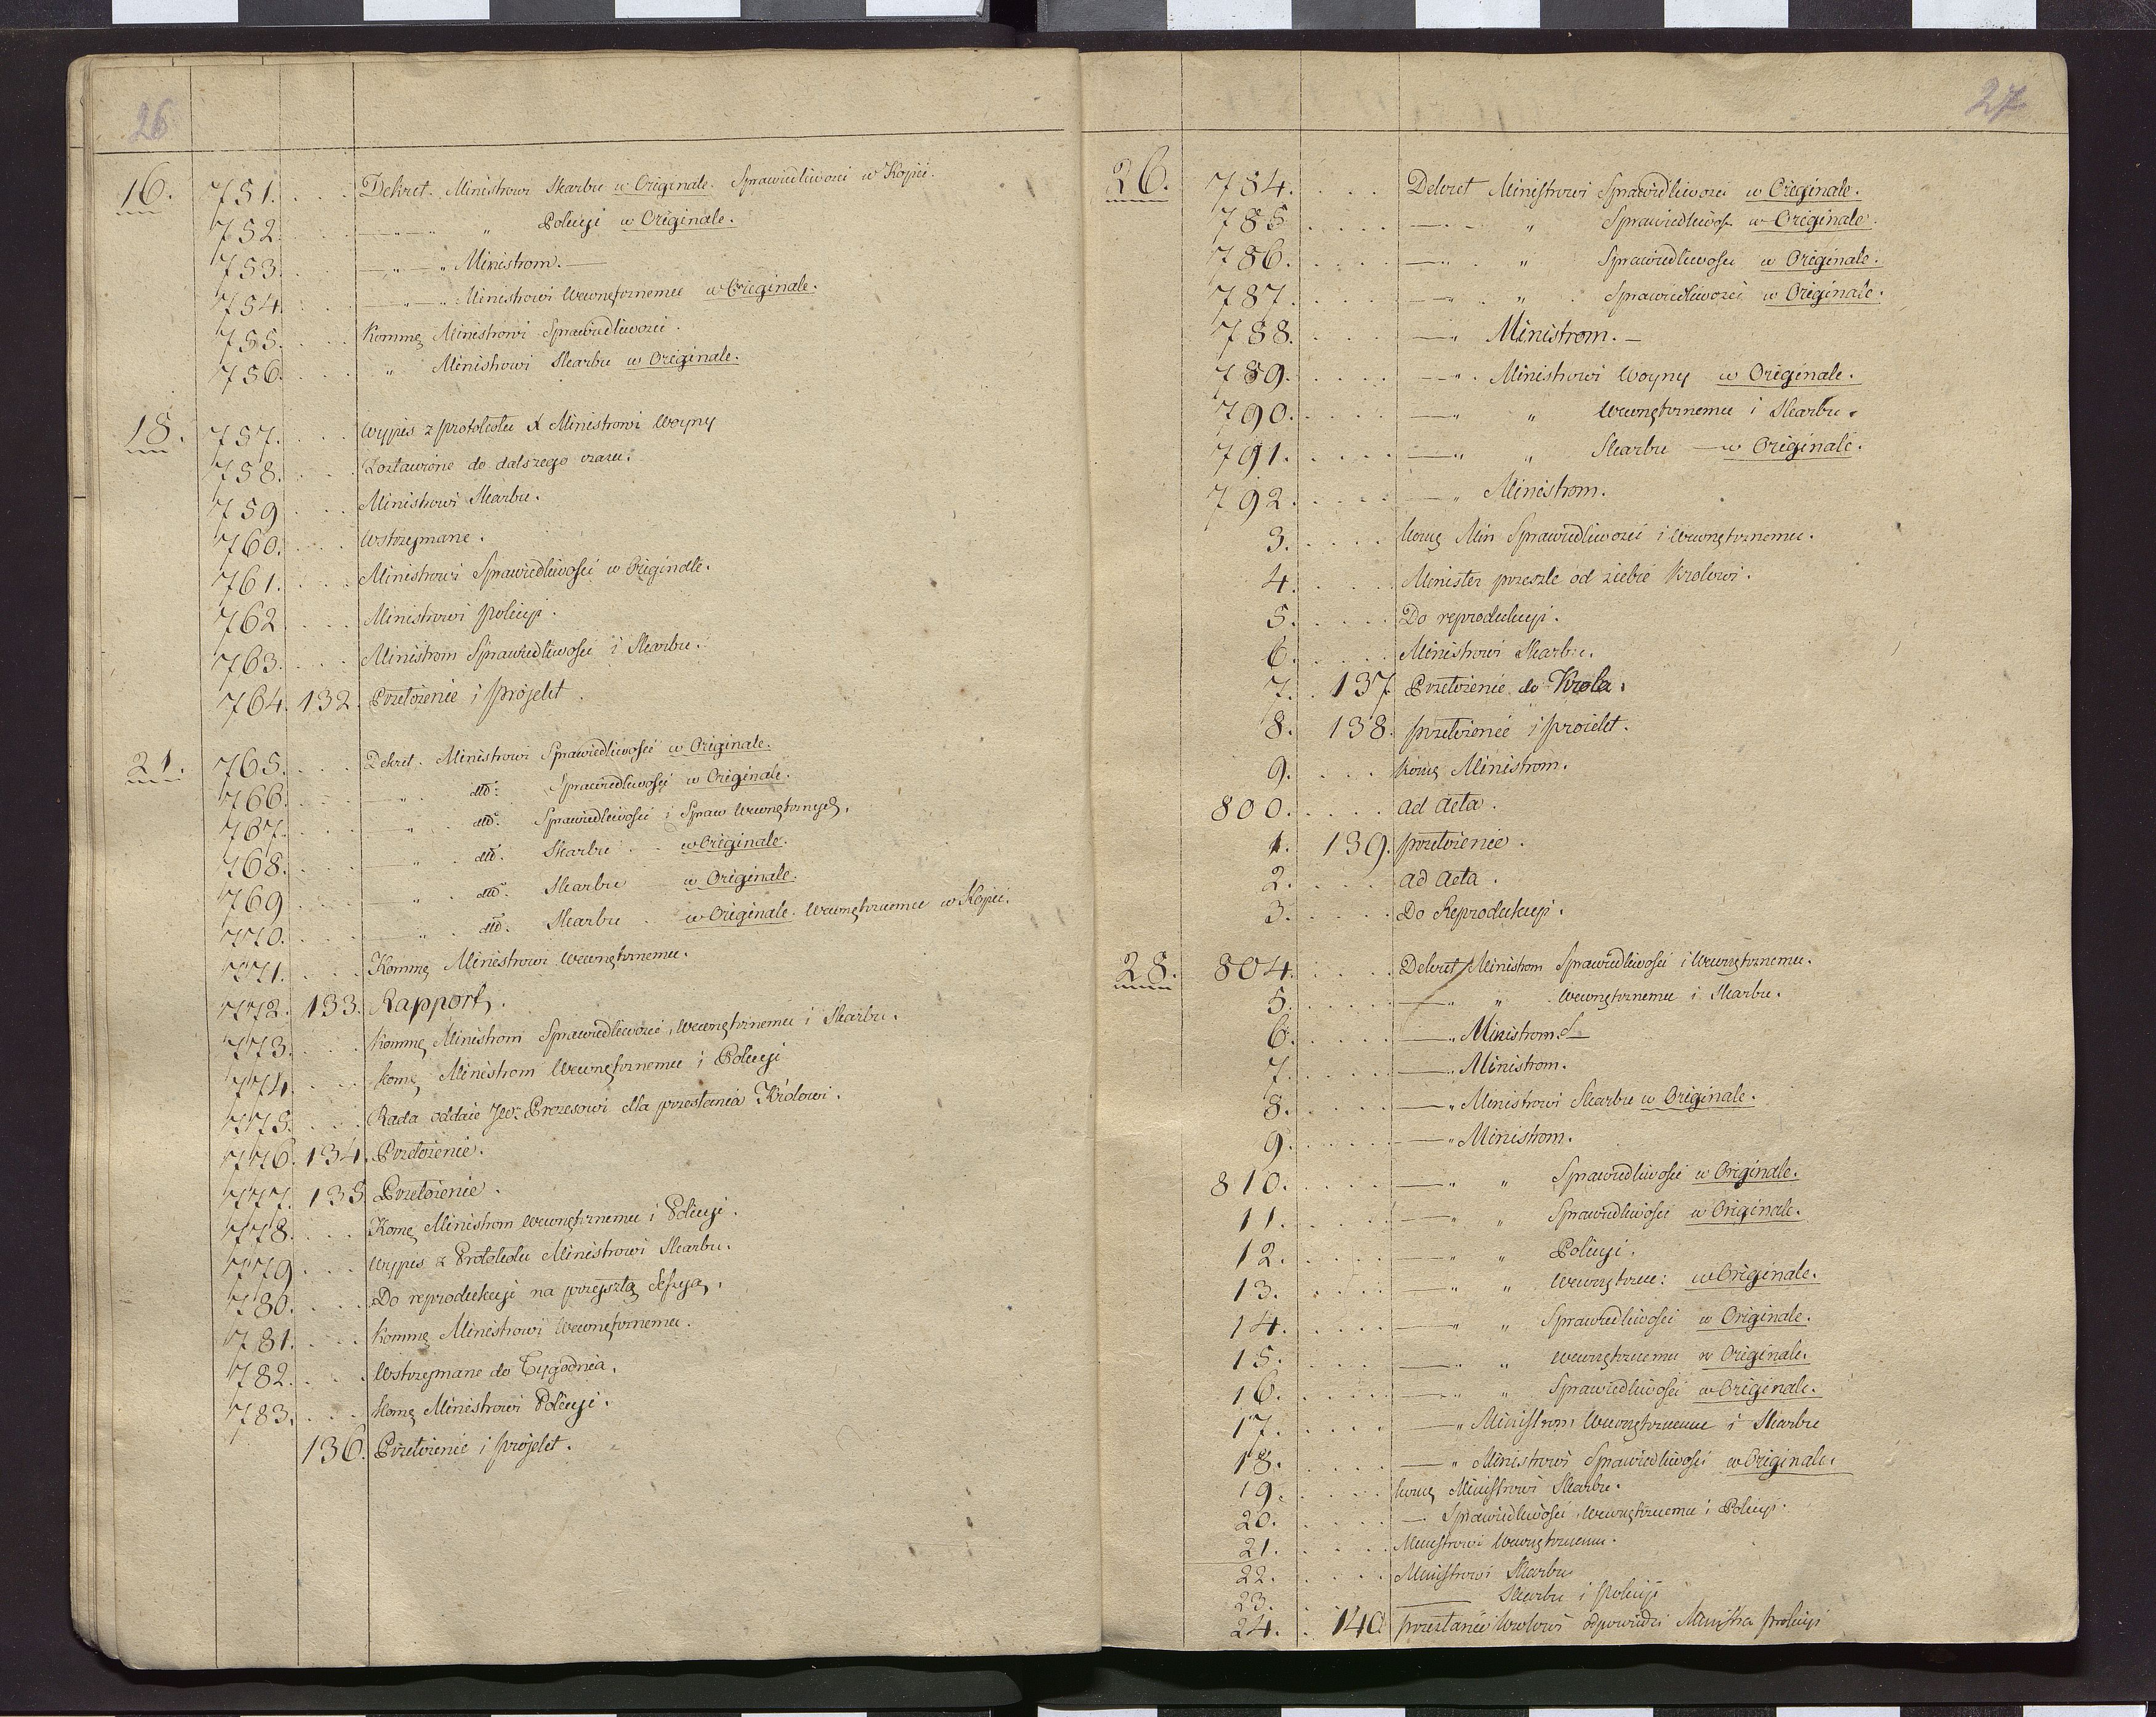 26
16. 751. .... Dekret. Ministrowi Skarbu w Originale. Sprawiedliwości w Kopii.
752. .... —„—„ „ Policyi w Originale.
753. .... —„—„ Ministrom.—
754. .... —„—„ Ministrowi Wewnętrznemu w Originale.
755. .... Kommę Ministrowi Sprawiedliwości.
756. .... „ Ministrowi Skarbu w Originale.
18. 757. .... Wypis z protokołu Ministrowi Woyny
758. .... Zostawione do dalszego czasu.
759 .... Ministrowi Skarbu.
760. .... Wstrzymane.
761. .... Ministrowi Sprawiedliwości w Originale.
762 .... Ministrowi Policyi.
763. .... Ministrom Sprawiedliwości i Skarbu.
764. 132. Przełożenie i projekt.
21. 765. .... Dekret. Ministrowi Sprawiedliwości w Originale.
766. .... —„. dtó. Sprawiedliwości w Originale.
767. .... —„. dtó. Sprawiedliwości i Spraw Wewnętrznych.
768. .... —„. dtó. Skarbu . . w Originale.
769 .... —„. dtó. Skarbu w Originale.
770. .... —„. dtó. Skarbu . w Originale. Wewnętrznemu w Kopii.
771. .... Kommę Ministrowi Wewnętrznemu.
772. 133. Rapport.
773. .... Kommę Ministrom Sprawiedliwości, Wewnętrznemu i Skarbu.
774. .... komę Ministrom Wewnętrznemu i Policyi
775. .... Rada oddaie Jw. Prezesowi dla przesłania Królowi.
776. 134. Przełożenie.
777. 135 Przełożenie.
778. .... Komę Ministrom Wewnętrznemu i Policyi.
779 .... Wypis z Protokołu Ministrowi Skarbu.
780. .... Do reprodukcyi na przyszłą Sessyą.
781. .... Kommę Ministrowi Wewnętrznemu.
782. .... Wstrzymane do Tygodnia.
783. .... Komę Ministrowi Policyi.
136. Przełożenie i projekt.
27
26. 784. .... Dekret Ministrowi Sprawiedliwości w Originale.
785 .... —„— „ Sprawiedliwości w Originale.
786. .... —„. „ Sprawiedliwości w Originale.
787. .... —„. „ Sprawiedliwości w Originale.
788. .... —„ Ministrom.—
789. .... —„. Ministrowi Woyny w Originale.
790. .... —„ „ Wewnętrznemu i Skarbu.
791. .... —„ „ Skarbu — w Originale.
792. .... —„ Ministrom.
3. .... Komę Min Sprawiedliwości i Wewnętrznemu.
4. .... Minister przeszle od siebie Krolowi.
5. .... Do reprodukcyi.
6. .... Ministrowi Skarbu.
7. 137 Przełożenie do Krola.
8. 138. przełożenie i proiekt.
9. .... Komę Ministrom.
800. .... ad acta.
1. 139. przełożenie.
2. .... ad acta.
3. .... Do Reprodukcyi.
28. 804. .... Dekret Ministrom Sprawiedliwości i Wewnętrznemu.
5. .... —„ „ Wewnętrznemu i Skarbu.
6. .... —„ Ministrom.—
7. .... —„ Ministrom.
8. .... —„ Ministrowi Skarbu w Originale.
9. .... —„ Ministrom.
810. .... —„ „ Sprawiedliwości w Originale.
11. .... —„ „ Sprawiedliwości w Originale.
12. .... —„ „ Policyi.
13. .... —„ „ Wewnętrzne: w Originale.
14. .... —„ „ Sprawiedliwości w Originale.
15. .... —„ „ Wewnętrznemu w Originale.
16. .... —„ „ Sprawiedliwości w Originale.
17. .... —„ Ministrom Wewnętrznemu i Skarbu
18. .... —„ Ministrowi Sprawiedliwości w Originale.
19. .... komę Ministrowi Skarbu.
20. .... —. Sprawiedliwości, Wewnętrznemu i Policyi.
21. .... Ministrowi Wewnętrznemu.
22. .... Ministrowi Skarbu
23. .. —— Skarbu i Policyi
24. . 140 przesłanie Krolowi odpowiedzi Ministra Policyi